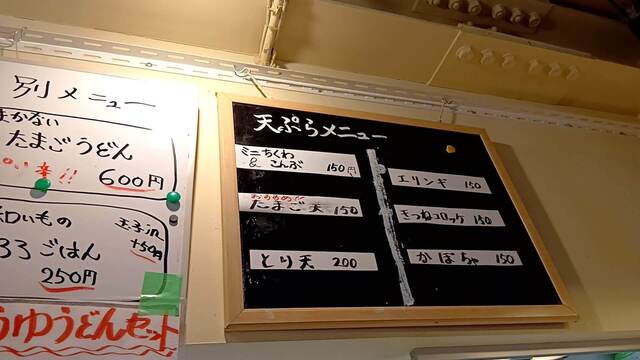 別メニュー
まかない
たまごうどん
600円
玉子in
+50円
ごはん
250円
うゆうどんセット
天ぷらメニュー
ミニちくわ
& こんぶ 150円
おすすめ!!
たまご天 150
とり天 200
エリンギ 150
きつねコロッケ 150
かぼちゃ 150